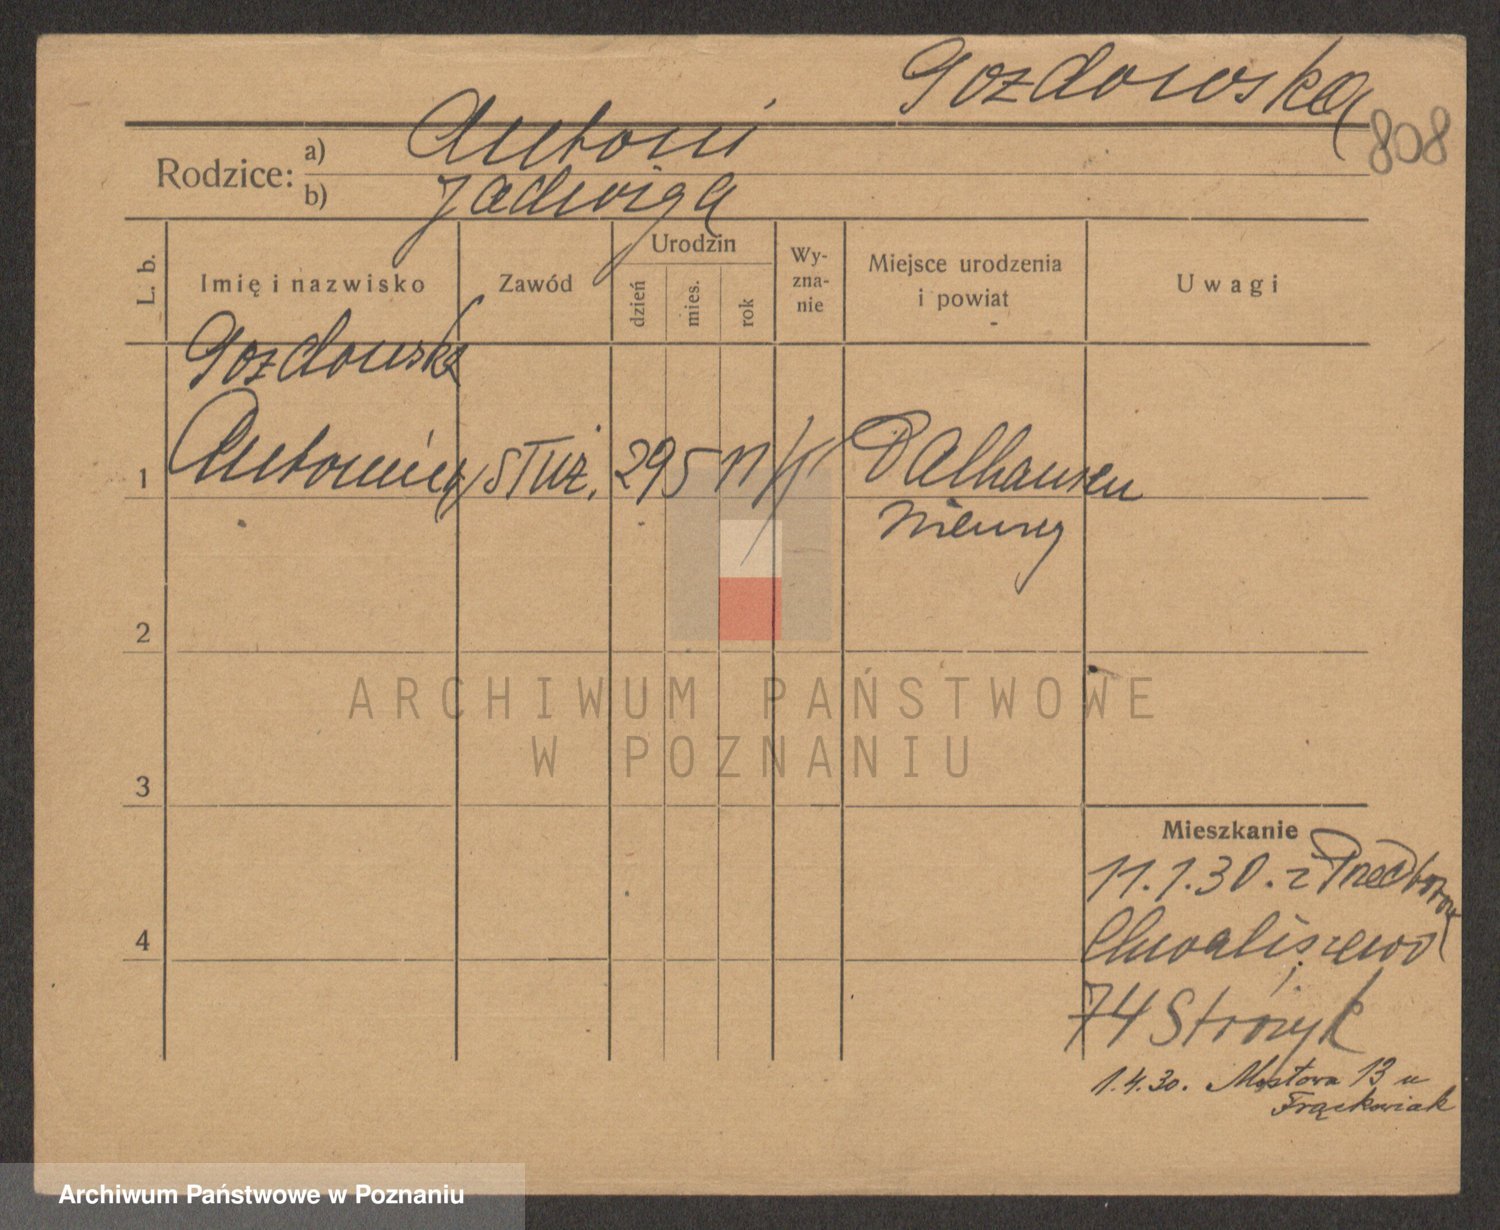 Gozdowska
808
Rodzice: a) Antoni
b) Jadwiga
L. b. Imię i nazwisko Zawód Urodzin dzień mies. rok Wy-zna-nie Miejsce urodzenia i powiat Uwagi
Gozdowska
1 Antonina służ. 29 5 11 Dalhausen
Niemcy
2
3
Mieszkanie
11.1.30. z Przedborowa
4 Chwaliszewo
74 Stróżyk
1.4.30. Mostowa 13 u
Frąckowiak
ARCHIWUM PAŃSTWOWE
W POZNANIU
Archiwum Państwowe w Poznaniu